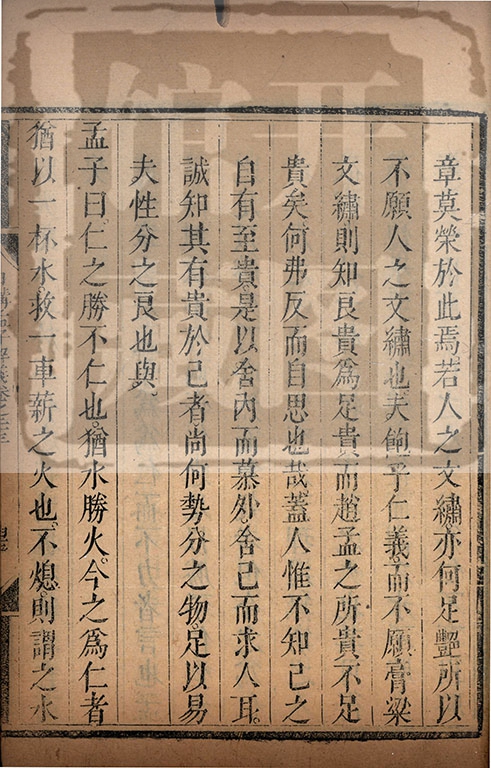 章莫榮於此焉若人之文繡亦何足艷所以
不願人之文繡也夫飽乎仁義而不願膏粱
文繡則知良貴為足貴而趙孟之所貴不足
貴矣何弗反而自思也哉蓋人惟不知己之
自有至貴是以舍內而慕外舍己而求人耳
誠知其有貴於己者尚何勢分之物足以易
夫性分之良也與
孟子曰仁之勝不仁也猶水勝火今之為仁者
猶以一杯水救一車薪之火也不熄則謂之水